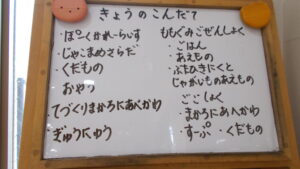 きょうのこんだて
・ぽーくかれーらいす
・じゃこまめさらだ
・くだもの
おやつ
・てづくりまかろにあべかわ
・ぎゅうにゅう
ももぐみごぜんしょく
・ごはん
・あえもの
・ぶたひきにくと
じゃがいものあえもの
ごごしょく
・まかろにあべかわ
・すーぷ ・くだもの